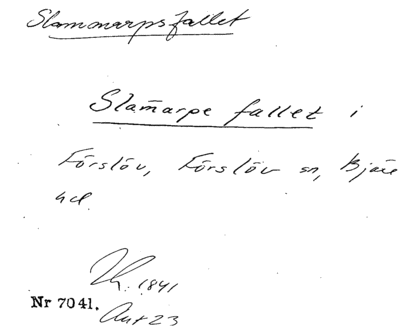 Slammarpsfallet
Slam̄arpe fallet i
Förslöv, Förslöv sn, Bjäre
hd.
1841
Nr 7041.
Akt 23